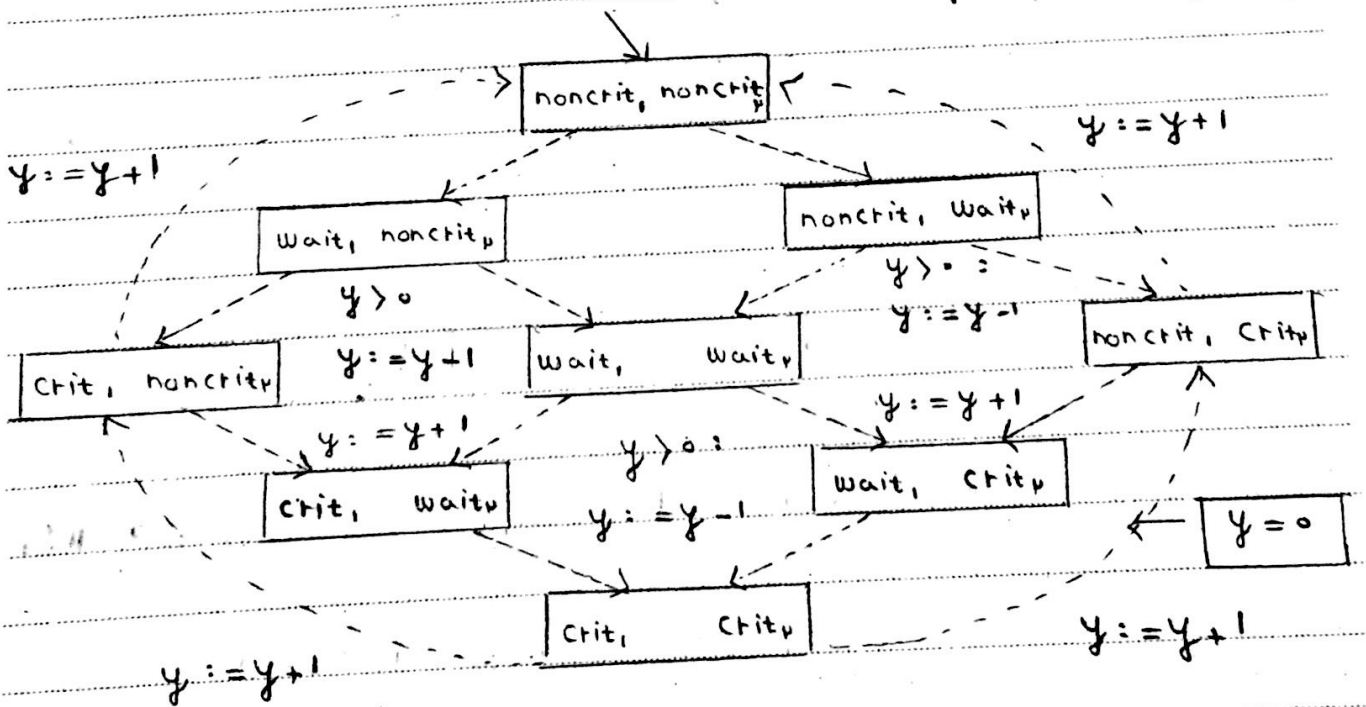 noncrit₁ noncrit₂
y := y+1
y := y+1
wait₁ noncrit₂
noncrit₁ wait₂
y > 0
y > 0 :
y := y-1
crit₁ noncrit₂
y := y+1
wait₁ wait₂
noncrit₁ crit₂
y := y+1
y := y+1
crit₁ wait₂
y > 0 :
y := y-1
wait₁ crit₂
y = 0
crit₁ crit₂
y := y+1
y := y+1